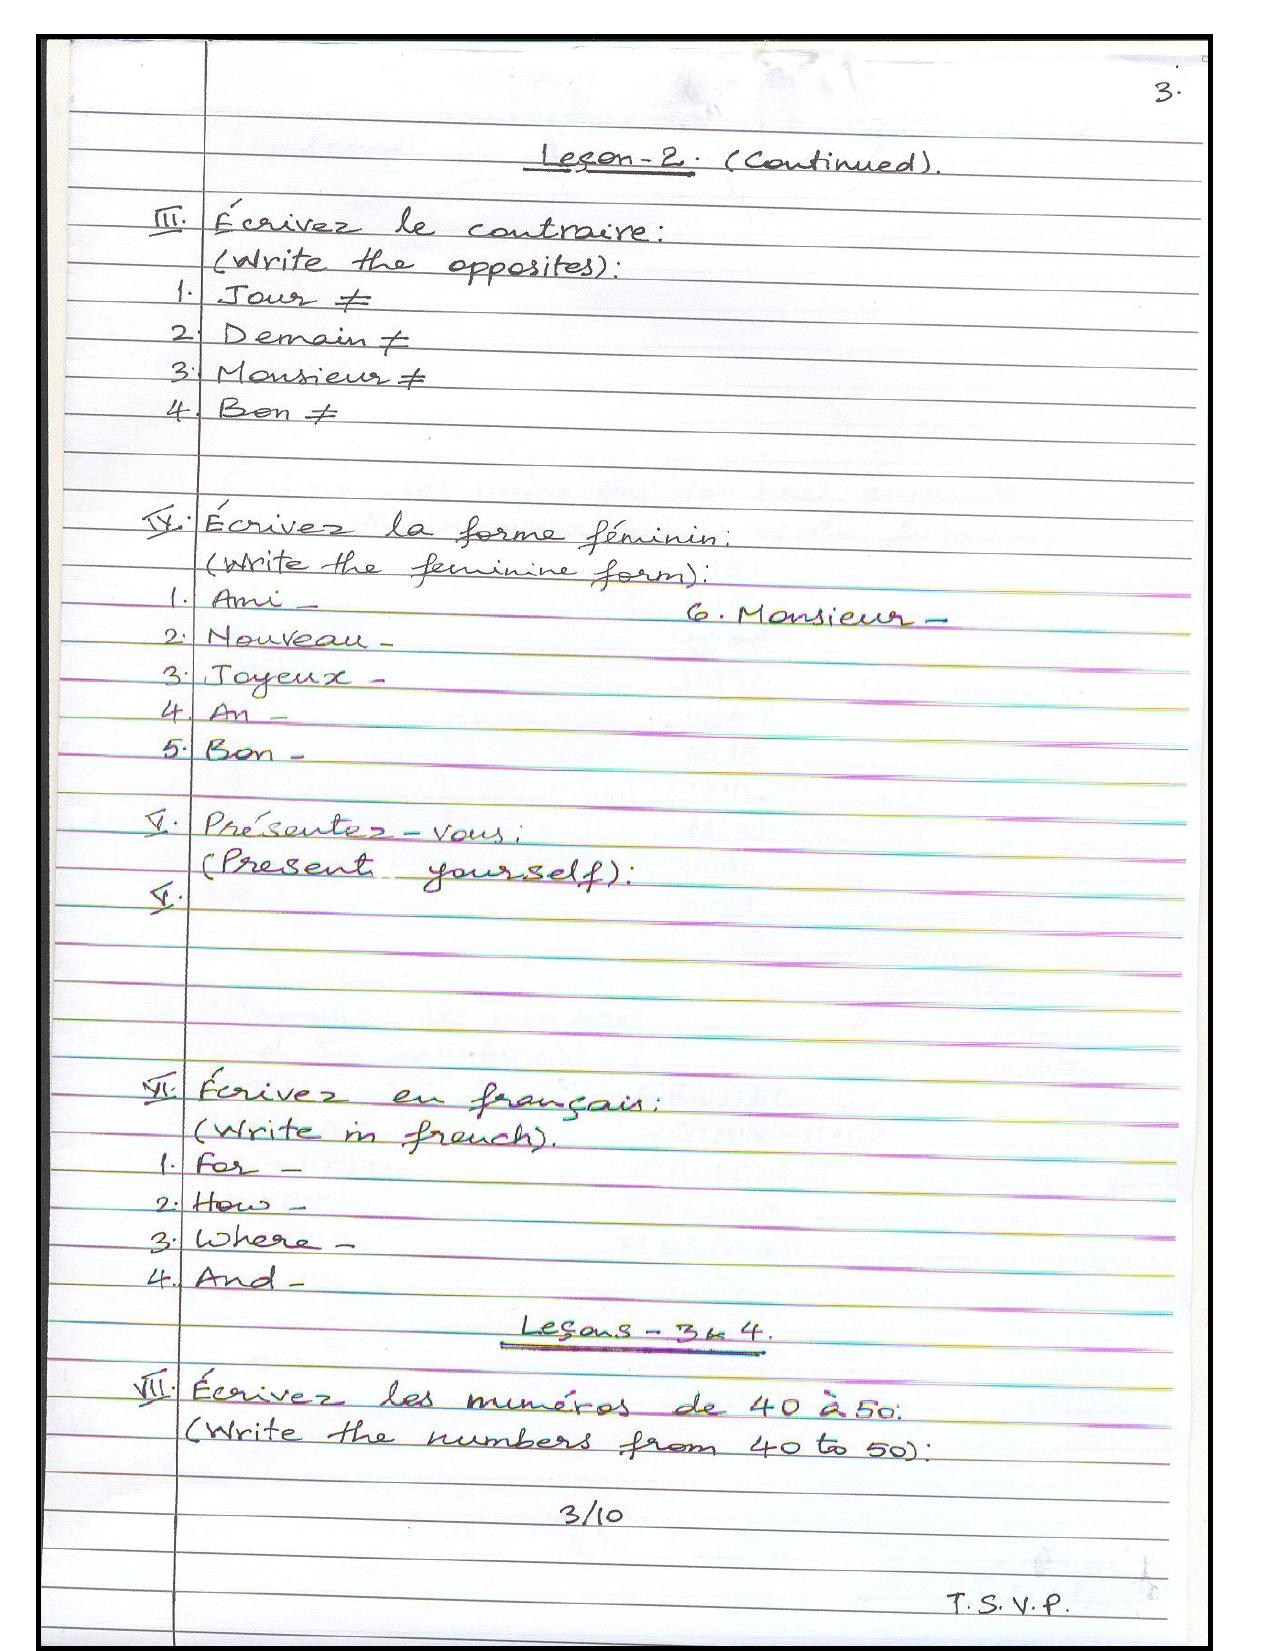 3.
Leçon-2. (Continued).
III. Écrivez le contraire:
(Write the opposites):
1. Jour ≠
2. Demain ≠
3. Monsieur ≠
4. Bon ≠
IV. Écrivez la forme féminin:
(Write the feminine form):
1. Ami -
6. Monsieur -
2. Nouveau -
3. Joyeux -
4. An -
5. Bon -
V. Présentez-vous:
(Present yourself):
V.
VI. Écrivez en français:
(Write in french).
1. For -
2. How -
3. Where -
4. And -
Leçons - 3 & 4.
VII. Écrivez les numéros de 40 à 50:
(Write the numbers from 40 to 50):
3/10
T.S.V.P.